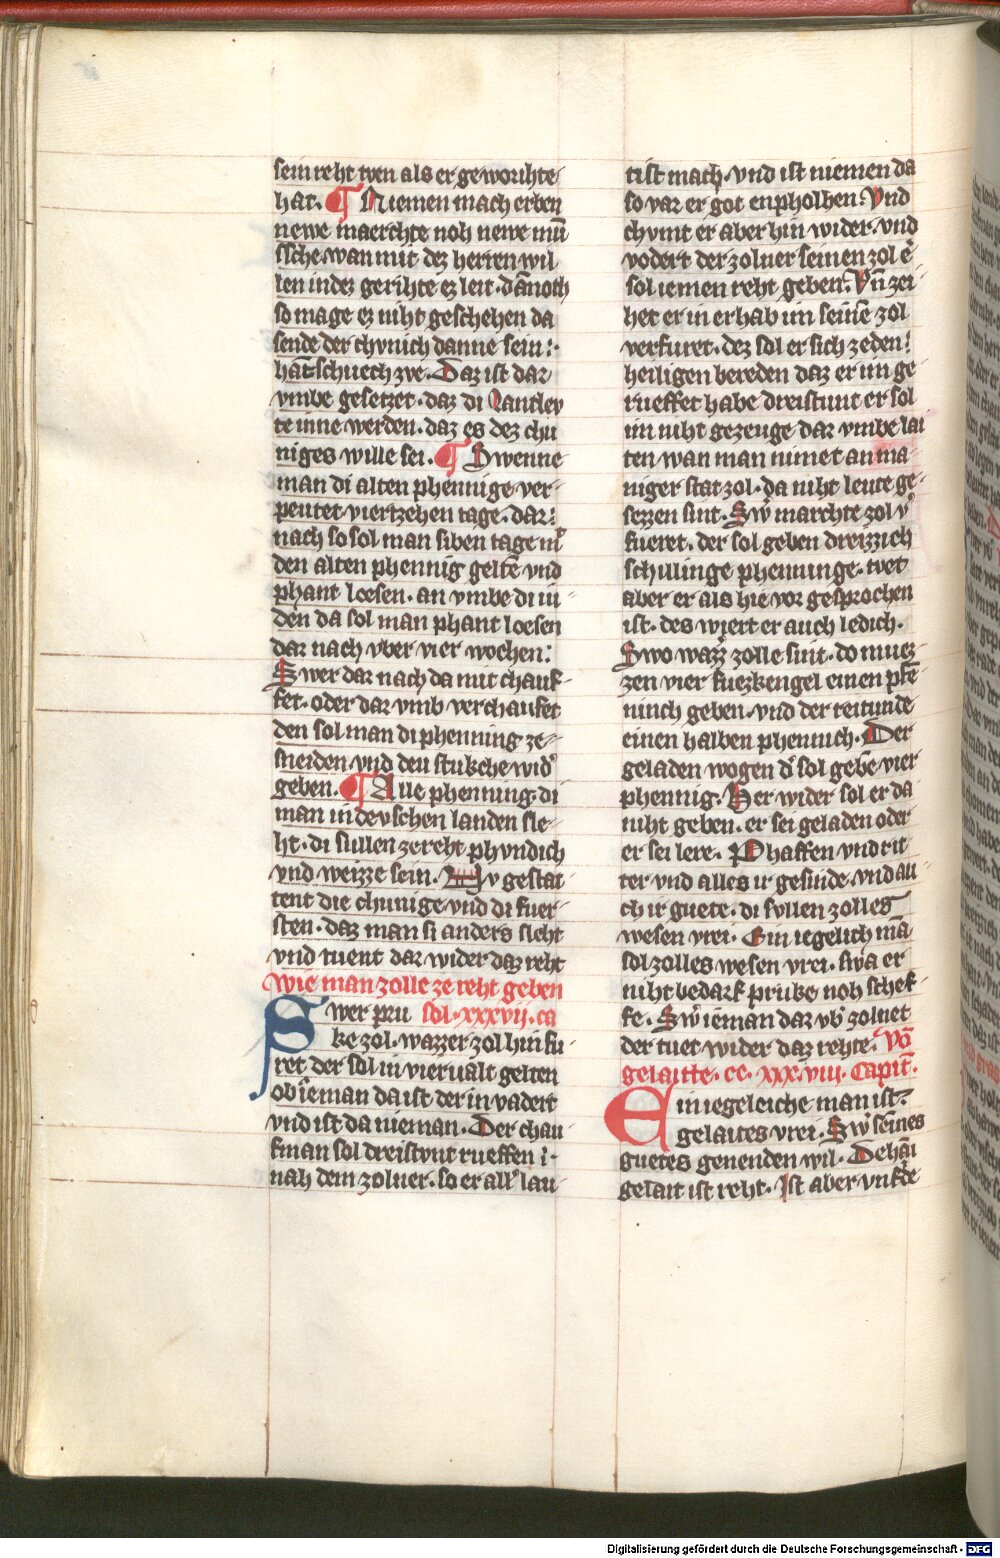 sein reht tven als er geworihte
hat. ¶ Niemen mach erben
newe maerchte noh newe mü
ssche wan mit dez herren wil
len in dez gerihte ez leit. dānoth
so mage ez niht geschehen da
sende der chvnich danne sein:
hātschuech zve. Daz ist dar
vmbe gesetzet. daz di lantlev
te inne werden. daz es dez chu
niges wille sei. ¶ Swenne
man di alten phennige ver
peutet viertzehen tage. dar:
nach so sol man siben tage mͥ
den alten phennig geltē vnd
phant loesen. an vmbe di iu
den da sol man phant loesen
dar nach vber vier wochen:
Swer dar nach da mit chauf
fet. oder dar vmb verchaufet
den sol man di phenning ze
sneiden vnd den stukche wid̾
geben. ¶ Alle phenning di
man in devschen landen sle
ht. di sullen ze reht phvndich
vnd weizze sein. Nv gestat
tent die chunige vnd di fuer
sten. daz man si anders sleht
vnd tuent dar wider daz reht
wie man zolle ze reht geben
Swer pru sol. xxxvij. ca
ke zol. wazzer zol hin fu
ret der sol in viervalt gelten
ob ieman da ist der in vadert
vnd ist da nieman. Der chau
fman sol dreistvnt rueffen i
nah dem zolner. so er all̾ lau
tist mach. vnd ist niemen da
so var er got enpholhen. Vnd
chvmt er aber hin wider. vnd
vodert der zolner seinen zol e͛
sol iemen reht geben. Vn̄ zei
het er in er hab im seinē zol
verfuret. dez sol er sich ze den
heiligen bereden daz er im ge
rueffet habe dreistunt er sol
im niht gezeuge dar vmbe lai
ten wan man nimet an ma
niger stat zol. da niht leute ge
sezzen sint. Sw̾ marchte zol v̾
fueret. der sol geben dreizzich
schillinge phenninge. tvet
aber er als hie vor gesprochen
ist. des wiert er auch ledich.
Swo wazz̾ zolle sint. do muez
zen vier fuezkengel einen pfē
ninch geben. vnd der reitunde
einen halben phennich. Der
geladen wogen d̾ sol gebē vier
phennig. Her wider sol er da
niht geben. er sei geladen oder
er sei lere. Phaffen vnd rit
ter vnd alles ir gesinde. vnd au
ch ir guete. di svllen zolles
wesen vrei. Ein iegelich mā
sol zolles wesen vrei. swa er
niht bedarf pruke noh schef
fe. Sw̾ ieman dar vb̾ zolnet
der tuet wider daz rehte. Vō
gelaitte. cc. xxx.viii. Capit̄.
Ein iegeleiche man ist
gelaites vrei. Sw̾ seines
guetes genenden wil. Dehāi
gelait ist reht. Ist aber vnfde
Digitalisierung gefördert durch die Deutsche Forschungsgemeinschaft - DFG